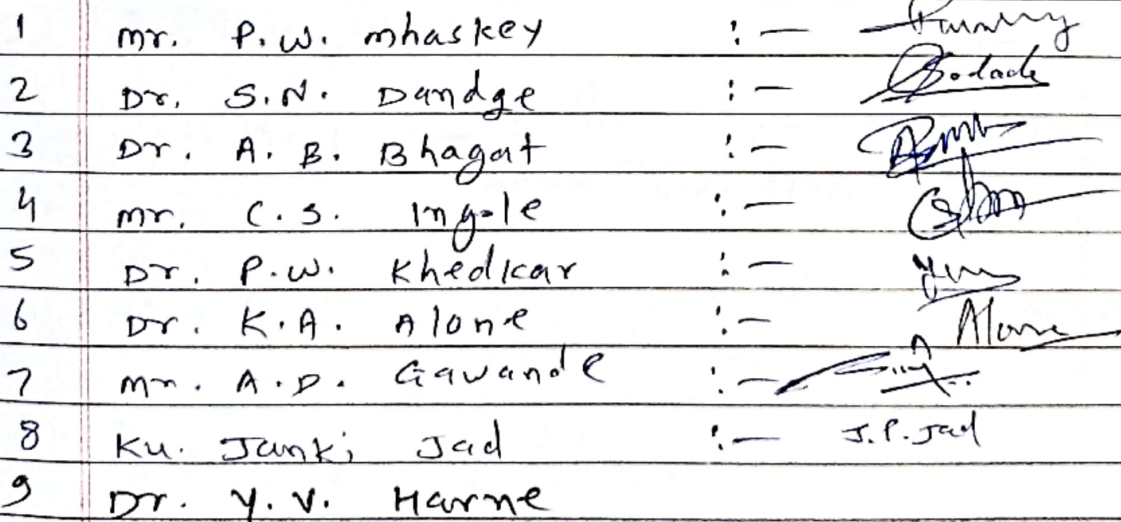 1 mr. P.W. mhaskey :-
2 Dr. S.N. Dandge :-
3 Dr. A.B. Bhagat :-
4 mr. C.S. Ingole :-
5 Dr. P.W. Khedkar :-
6 Dr. K.A. Alone :- Alone
7 mr. A.D. Gawande :-
8 Ku. Janki Jad :- J.P. Jad
9 Dr. Y.V. Harne